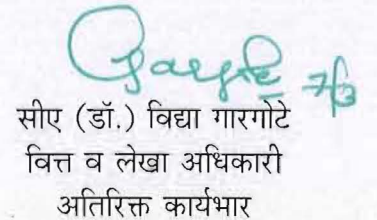 7/3
सीए (डॉ.) विद्या गारगोटे
वित्त व लेखा अधिकारी
अतिरिक्त कार्यभार